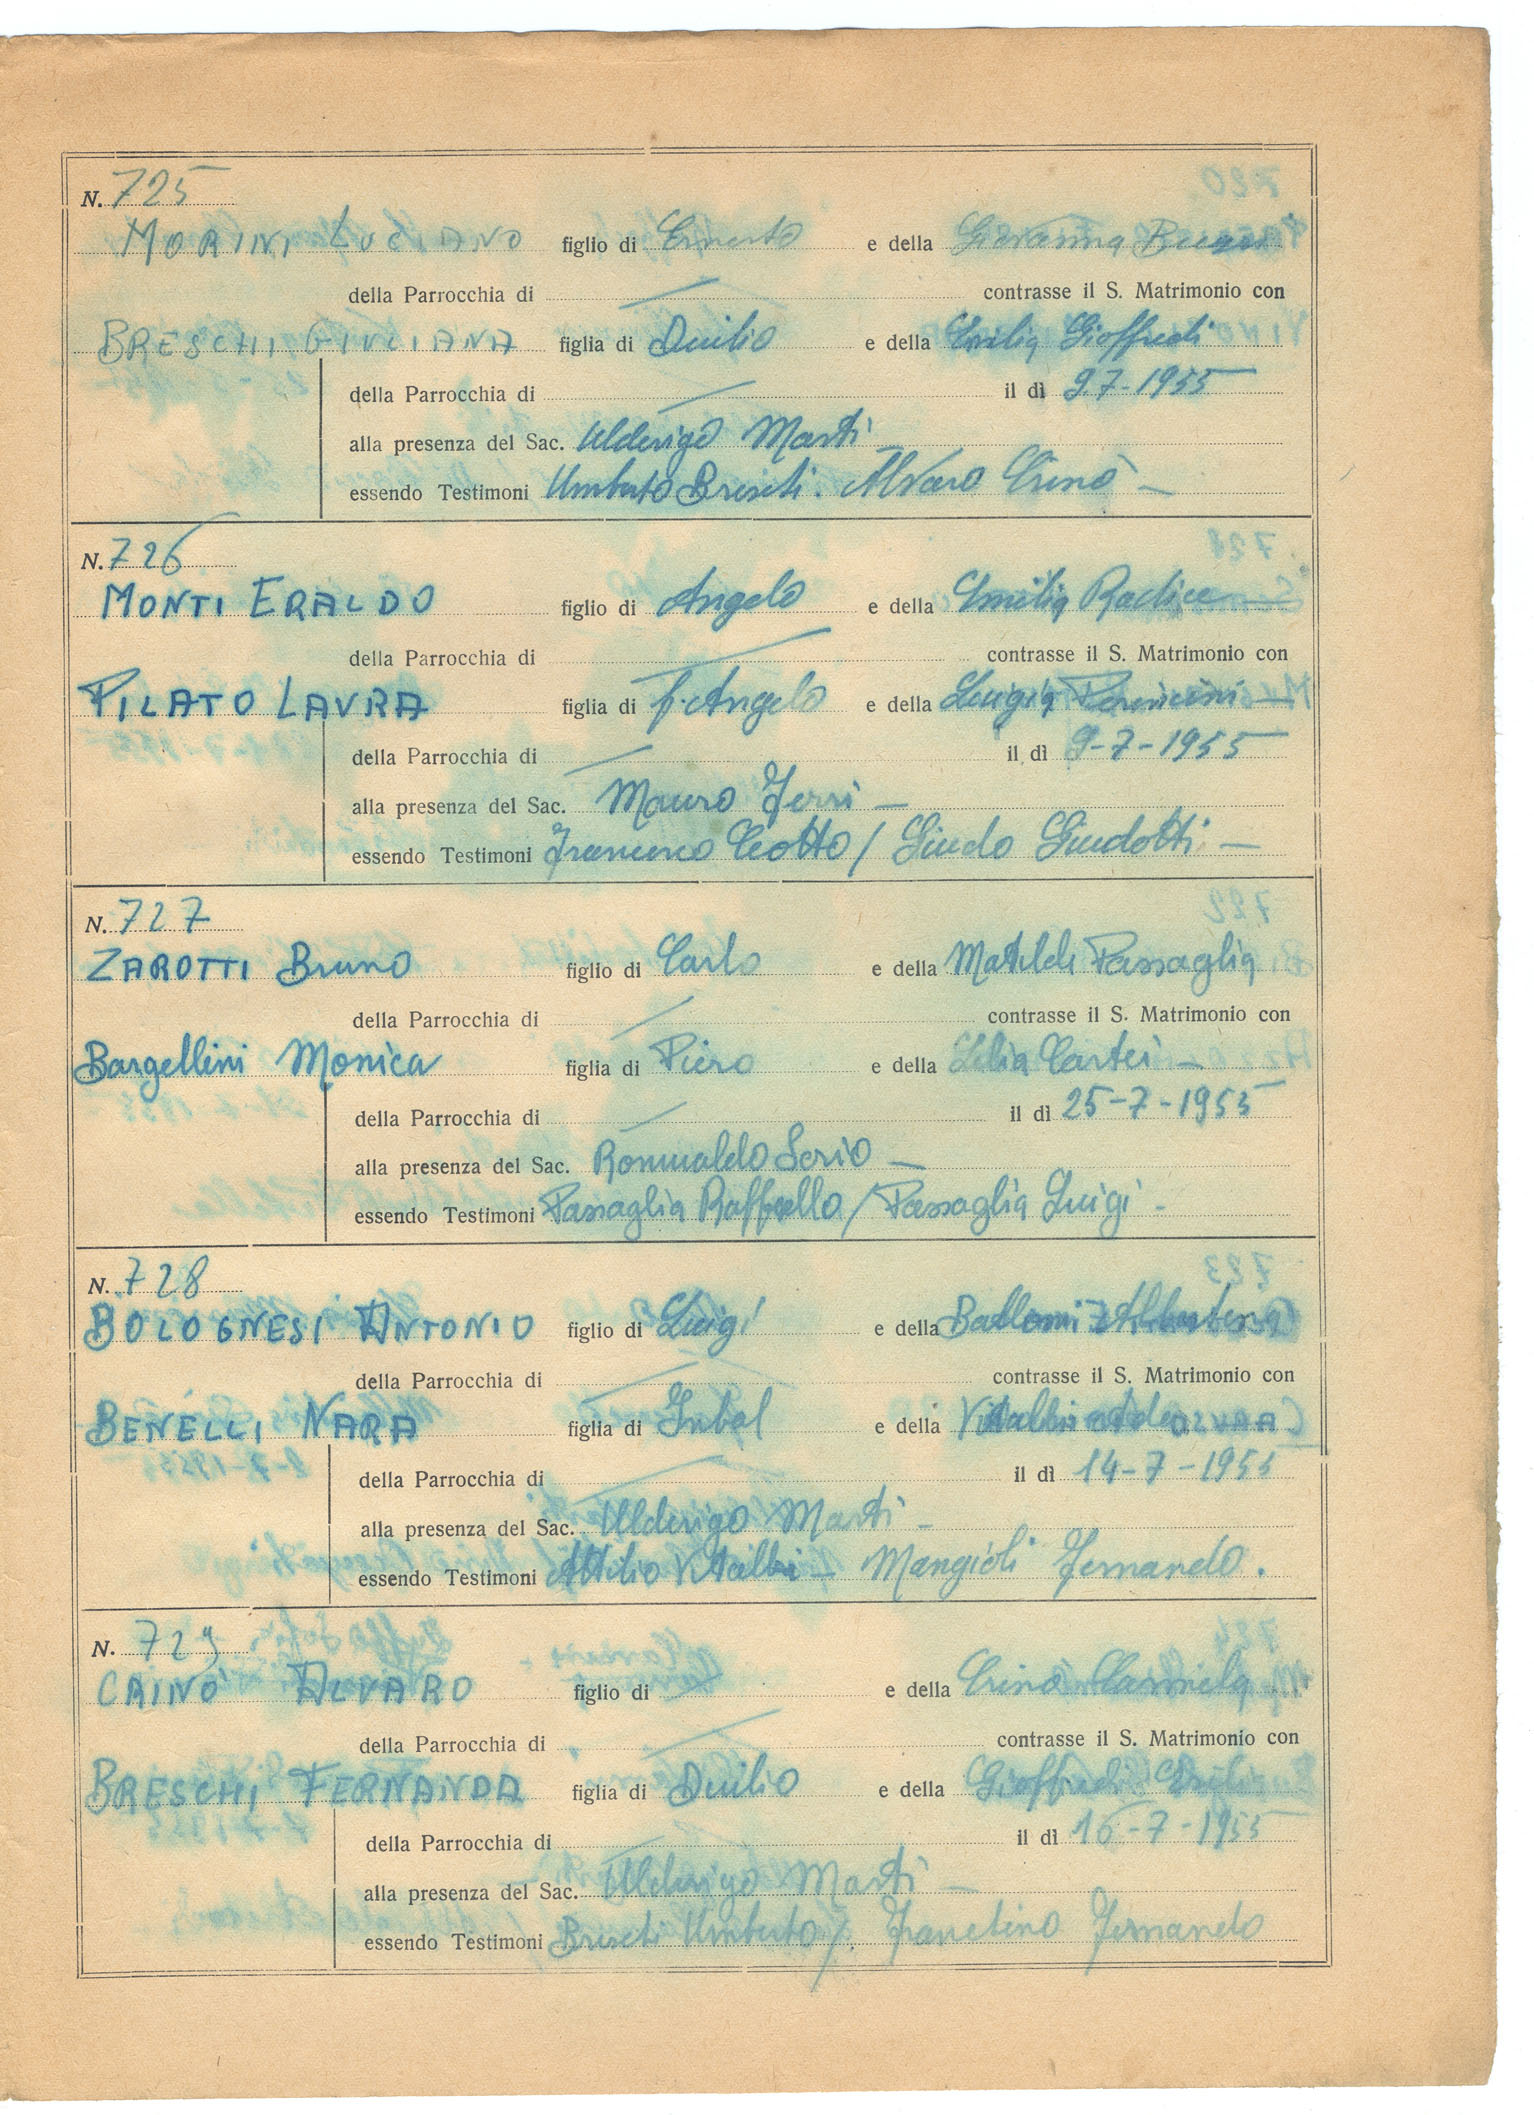 N. 725
MORINI LUCIANO figlio di Ernesto e della Giovanna
della Parrocchia di contrasse il S. Matrimonio con
BRESCHI GIULIANA figlia di Duilio e della Ersilia Gioffredi
della Parrocchia di il dì 9-7-1955
alla presenza del Sac. Ulderigo Marti
essendo Testimoni Umberto Breschi. Alvaro Crinò —
N. 726
MONTI ERALDO figlio di Angelo e della Emilia Radice
della Parrocchia di contrasse il S. Matrimonio con
PILATO LAURA figlia di f. Angelo e della Luigia
della Parrocchia di il dì 9-7-1955
alla presenza del Sac. Mauro Ferri —
essendo Testimoni Francesco Ceotto / Guido Guidotti —
N. 727
ZAROTTI Bruno figlio di Carlo e della Matilde Passaglia
della Parrocchia di contrasse il S. Matrimonio con
Bargellini Monica figlia di Piero e della Lelia Cartei —
della Parrocchia di il dì 25-7-1955
alla presenza del Sac. Romualdo Serio —
essendo Testimoni Passaglia Raffaello / Passaglia Luigi -
N. 728
BOLOGNESI ANTONIO figlio di Luigi e della
della Parrocchia di contrasse il S. Matrimonio con
BENELLI NARA figlia di Inbal e della Vitalbi
della Parrocchia di il dì 14-7-1955
alla presenza del Sac. Ulderigo Marti —
essendo Testimoni Attilio Vitalbi — Mangioli Fernando.
N. 729
CRINO' ALVARO figlio di e della Crinò Carmela
della Parrocchia di contrasse il S. Matrimonio con
BRESCHI FERNANDA figlia di Duilio e della Gioffredi Ersilia
della Parrocchia di il dì 16-7-1955
alla presenza del Sac. Ulderigo Marti —
essendo Testimoni Breschi Umberto / Francetino Fernando